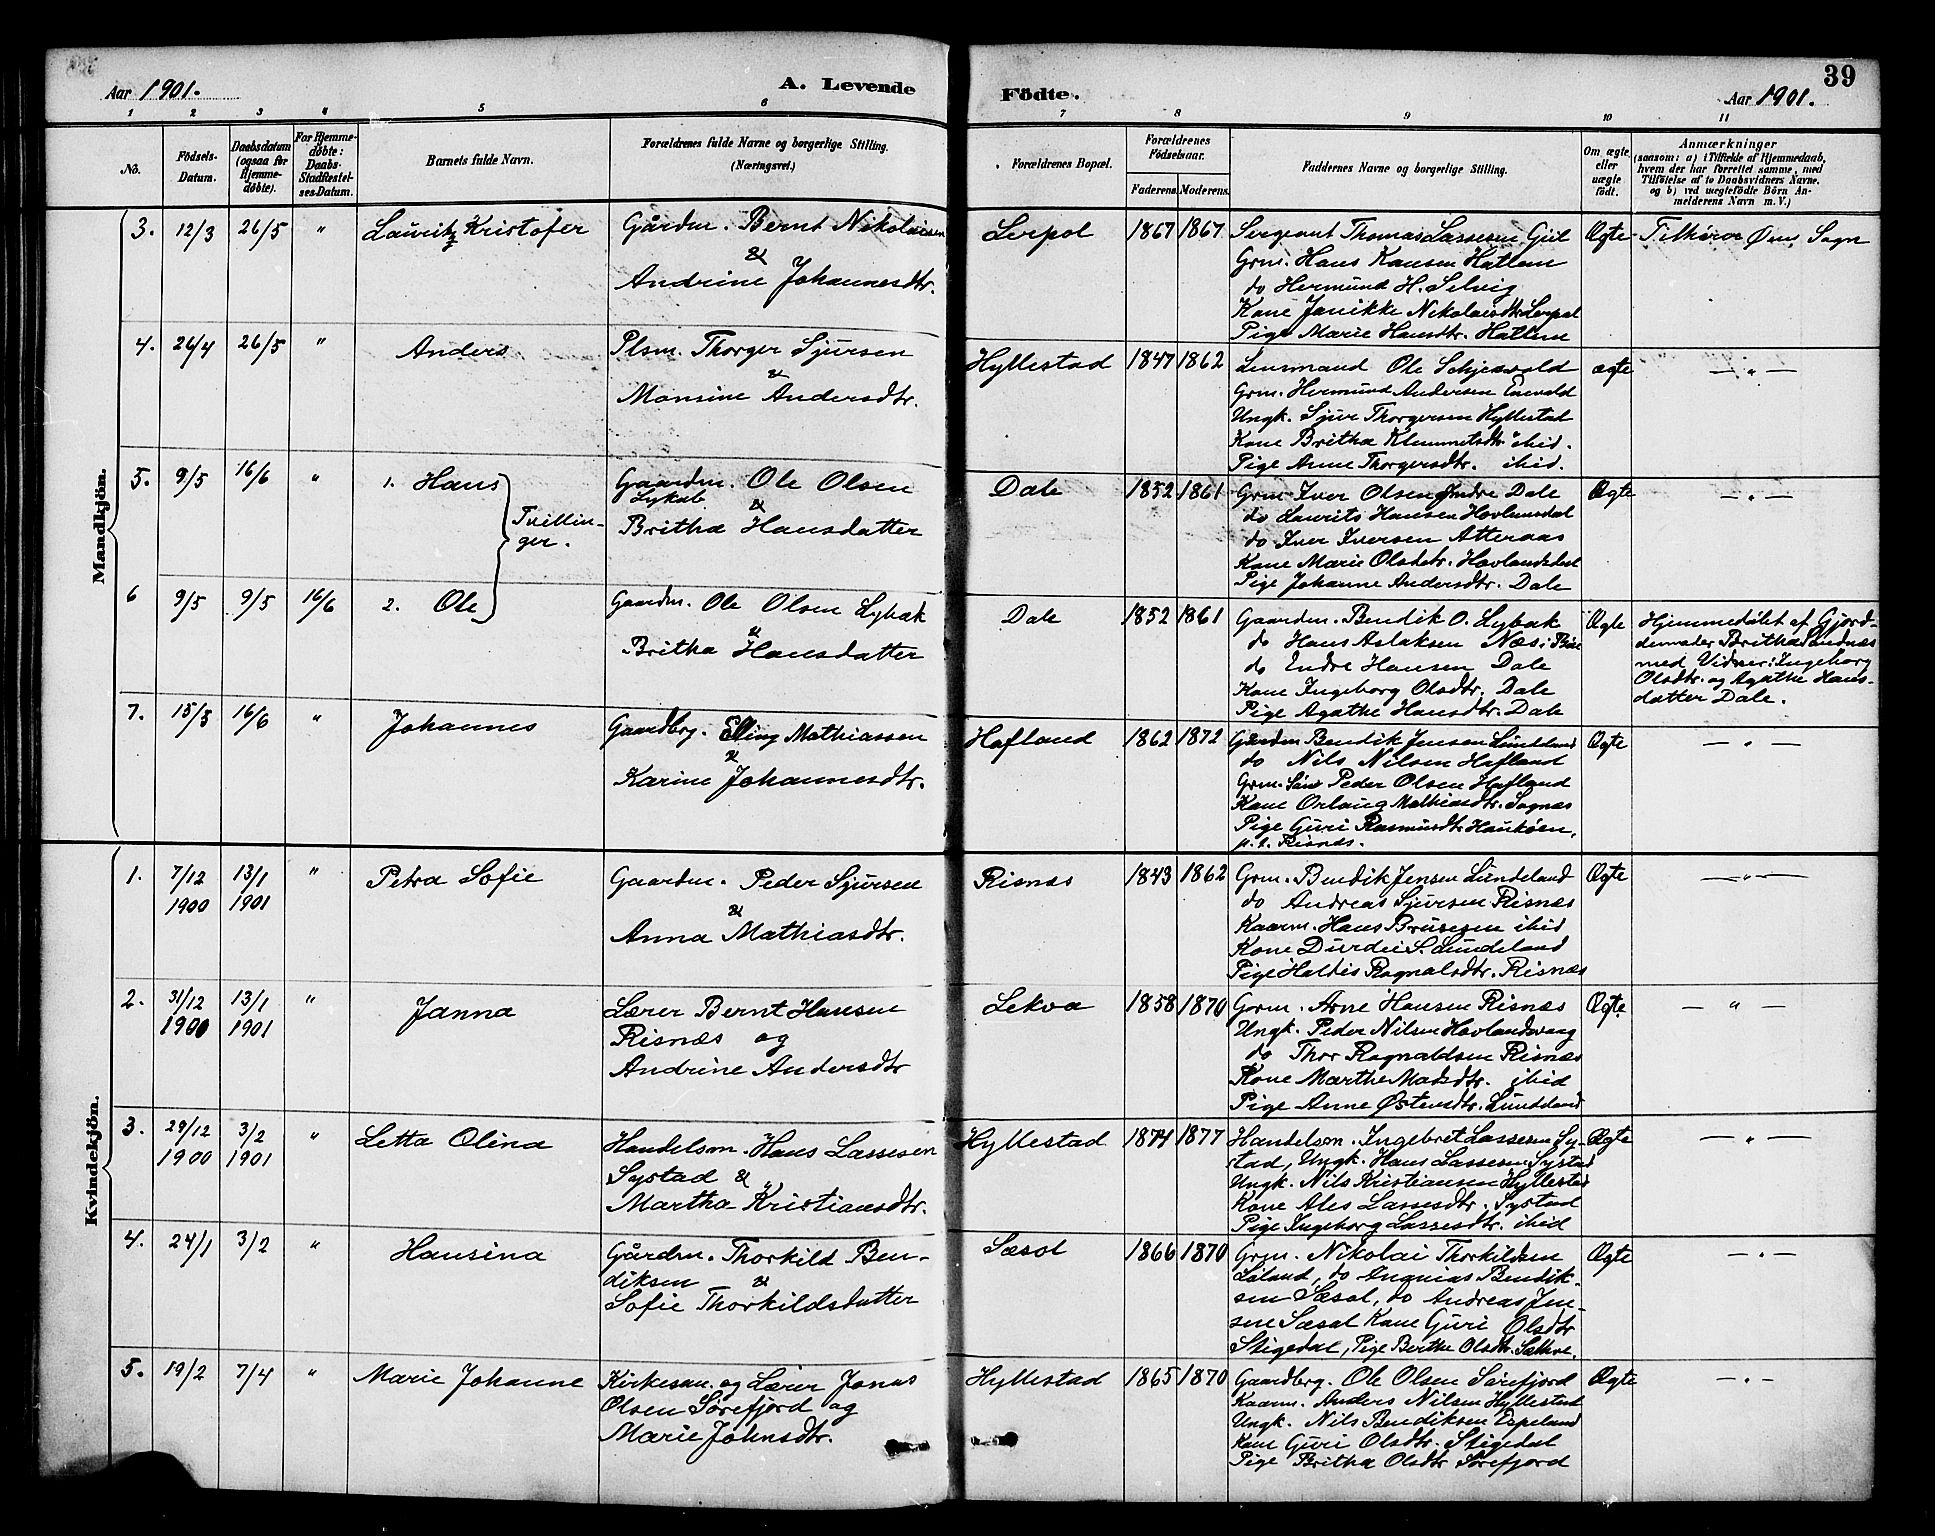 Aar 1901.
A. Levende
Födte.
39
Aar 1901.
1 2 3 4 5 6 7 8 9 10 11
No.
Födsels-Datum.
Daabsdatum (ogsaa for Hjemmedöbte).
For Hjemmedöbte: Daabs-Stadfæstelses-Datum.
Barnets fulde Navn.
Forældrenes fulde Navne og borgerlige Stilling.
(Næringsvei.)
Forældrenes Bopæl.
Forældrenes Födselsaar.
Faderens. Moderens.
Faddernes Navne og borgerlige Stilling.
Om ægte eller uægte födt.
Anmærkninger
(saasom: a) i Tilfælde af Hjemmedaab, hvem der har forrettet samme, med Tilföielse af to Daabsvidners Navne, og b) ved uægtefödte Börn Anmelderens Navn m. V.)
Mandkjön.
3. 12/3 26/5 " Lauritz Kristofer
Gårdm. Bernt Nikolaisen
&
Andrine Johannesdtr.
Lerpol 1867 1867
Sergeant Thomas Lassesen Giil
Grm. Hans Hansen Hatlem
do Hermund H. Selvig
Kone Janikke Nikolaisdtr Lerpol
Pige Marie Hansdtr. Hatlem
Ægte Tilhører Sogn
4. 26/4 26/5 " Anders
Plsm. Thorger Sjursen
&
Monsine Andersdtr.
Hyllestad 1847 1862
Lensmand Ole Schjersvold
Grm. Hermund Andersen Enevold
Ungk. Sjur Thorgersen Hyllestad
Kone Britha Klemmetsdtr ibid.
Pige Anne Thorgersdtr. ibid.
ægte — " —
5. 9/5 16/6 " 1. Hans
Tvillinger.
Gaardm. Ole Olsen
Lybæk &
Britha Hansdatter
Dale 1852 1861
Grm. Iver Olsen Indre Dale
do Laurits Hansen Hovlandsdal
do Iver Iversen Atteraas
Kone Marie Olsdtr. Hovlandsdal
Pige Johanne Andersdtr. Dale
Ægte — " —
6 9/5 9/5 16/6 2. Ole
Gaardm. Ole Olsen Lybæk
&
Britha Hansdatter
Dale 1852 1861
Gaardm. Bendik O. Lybæk
do Hans Aslaksen Næs i Bøe
do Endre Hansen Dale
Kone Ingeborg Olsdtr. Dale
Pige Agathe Hansdtr. Dale
Ægte
Hjemmedøbt af Gjord-
demoder Britha Sandnæs
med Vidner: Ingeborg
Olsdtr. og Agathe Hans-
datter Dale.
7. 15/5 16/6 " Johannes
Gaardbrg. Elling Mathiassen
&
Karine Johannesdtr.
Hafland 1862 1872
Gårdm Bendik Jensen Lundeland
do Nils Nilsen Hafland
Grm. Søn Peder Olsen Hafland
Kone Orlaug Mathiasdtr. Sognæs
Pige Guri Rasmusdtr. Haukøen,
p. t. Risnæs.
Ægte — " —
Kvindekjön.
1. 7/12 1900 13/1 1901 " Petra Sofie
Gaardm. Peder Sjursen
&
Anna Mathiasdtr.
Risnæs 1843 1862
Grm. Bendik Jensen Lundeland
do Andreas Sjursen Risnæs
Kaarm. Hans Brusesen ibid
Kone Durdei S. Lundeland
Pige Haldis Ragnalsdtr. Risnæs
Ægte — " —
2. 31/12 1900 13/1 1901 " Janna
Lærer Bernt Hansen
Risnæs og
Andrine Andersdtr
Lekva 1858 1870
Grm. Arne Hansen Risnæs
Ungk. Peder Nilsen Hovlandsvaag
do Thor Ragnaldsen Risnæs
Kone Marthe Madsdtr. ibid
Pige Anne Østensdtr. Lundeland
Ægte. — " —
3. 29/12 1900 3/2 1901 " Letta Olina
Handelsm. Hans Lassesen
Systad &
Martha Kristiansdtr.
Hyllestad 1874 1877
Handelsm. Ingebret Lassesen Sy-
stad, Ungk. Hans Lassesen Systad
Ungk. Nils Kristiansen Hyllestad
Kone Ales Lassesdtr. Systad
Pige Ingeborg Lassesdtr. ibid
Ægte — " —
4. 24/1 3/2 " Hansina
Gårdm. Thorkild Ben-
diksen &
Sofie Thorkildsdatter
Sæsol 1866 1870
Grm. Nikolai Thorkildsen
Løland, do Ananias Bendik-
sen Sæsol, do Andreas Jen-
sen Sæsol Kone Guri Olsdtr
Stigedal, Pige Berthe Olsdtr. Sætkve.
Ægte — " —
5. 19/2 7/4 " Marie Johanne
Kirkesan. og Lærer Jonas
Olsen Sørefjord og
Marie Johnsdtr.
Hyllestad 1865 1870
Gaardbrg. Ole Olsen Sørefjord
Kaarm. Anders Nilsen Hyllestad
Ungk. Nils Bendiksen Espeland
Kone Guri Olsdtr. Stigedal
Pige Britha Olsdtr Sørefjord
Ægte — " —